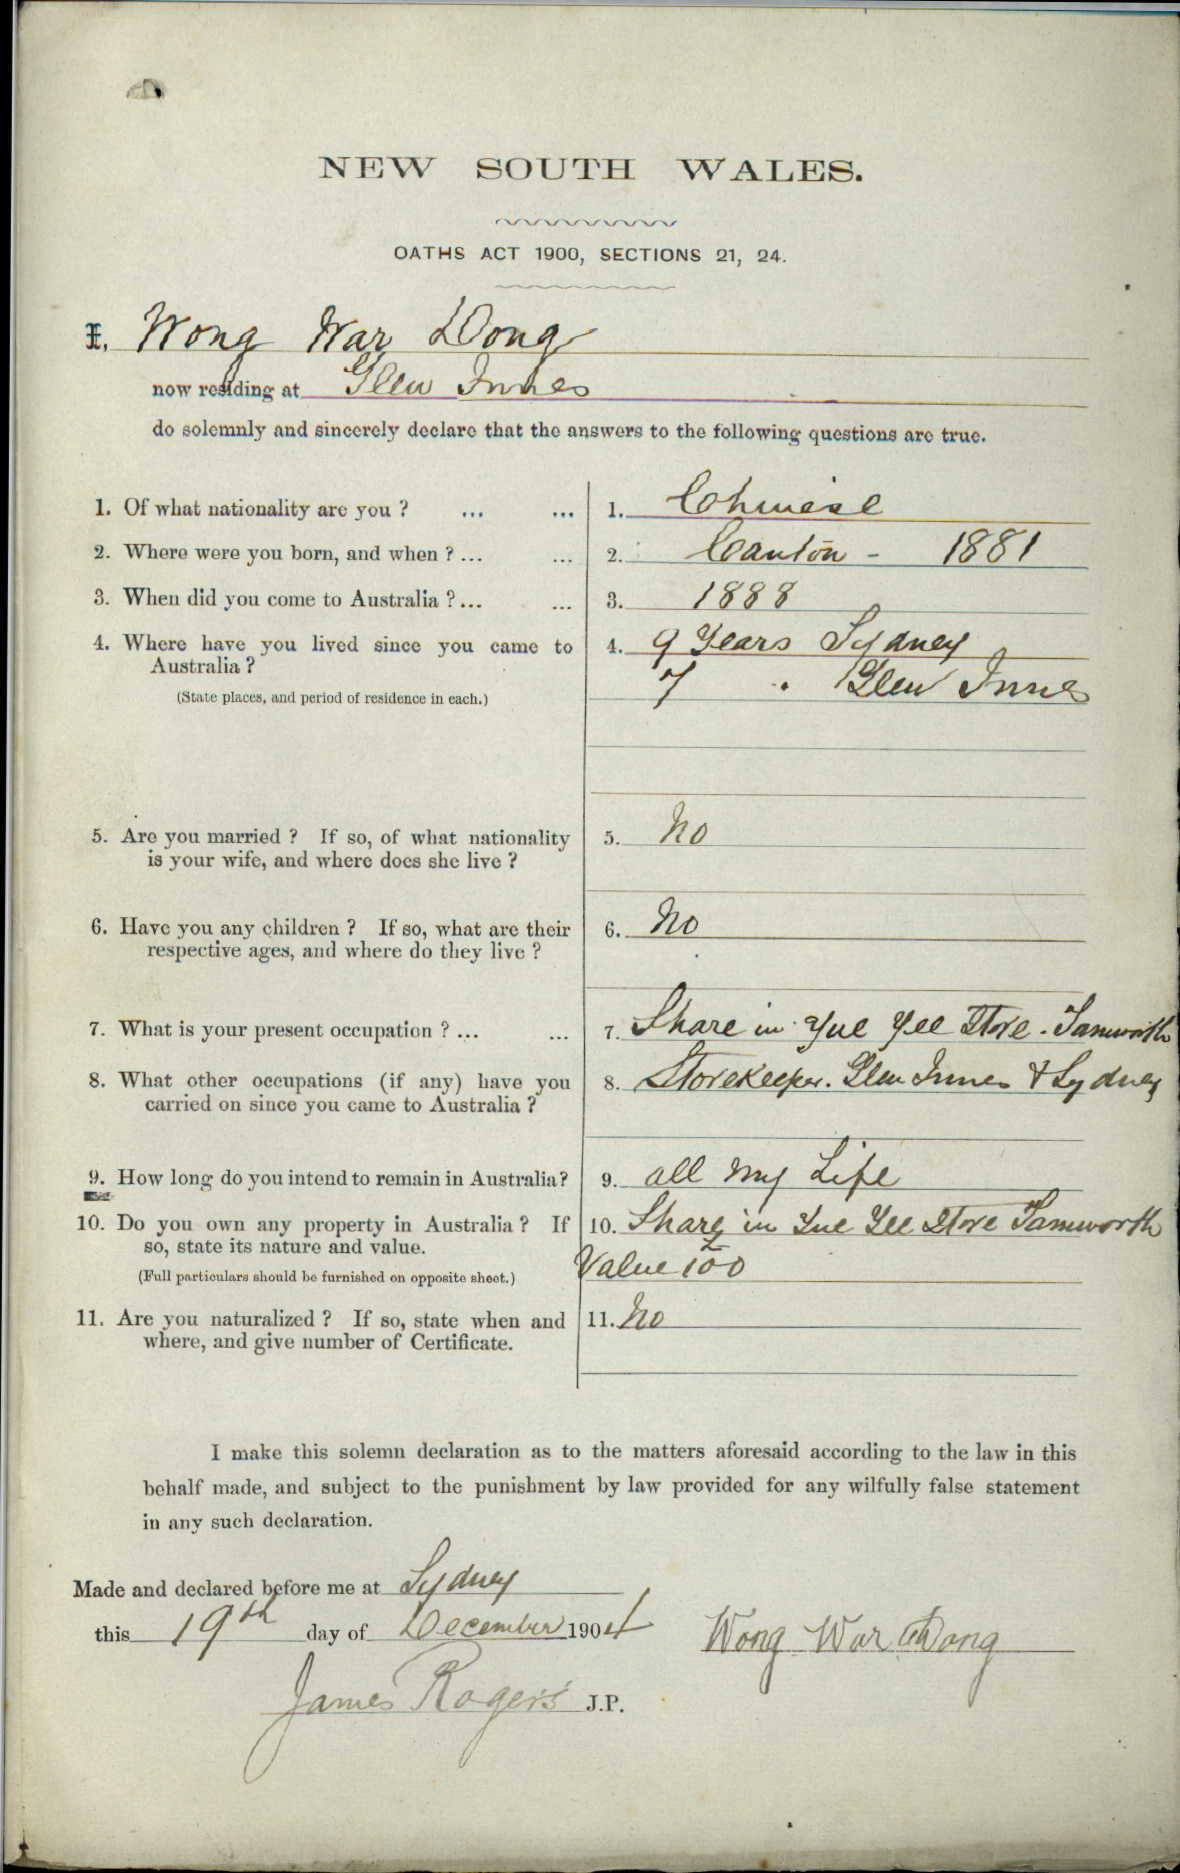 NEW SOUTH WALES.
OATHS ACT 1900, SECTIONS 21, 24.
I, Wong War Dong
now residing at Glen Innes
do solemnly and sincerely declare that the answers to the following questions are true.
1. Of what nationality are you ? ... ... 1. Chinese
2. Where were you born, and when ? ... ... 2. Canton - 1881
3. When did you come to Australia ? ... ... 3. 1888
4. Where have you lived since you came to 4. 9 Years Sydney
Australia ?
(State places, and period of residence in each.) 7 " Glen Innes
5. Are you married ? If so, of what nationality 5. No
is your wife, and where does she live ?
6. Have you any children ? If so, what are their 6. No
respective ages, and where do they live ?
7. What is your present occupation ? ... ... 7. Share in Yue Yee Store. Tamworth
8. What other occupations (if any) have you 8. Storekeeper. Glen Innes & Sydney
carried on since you came to Australia ?
9. How long do you intend to remain in Australia? 9. all my Life
10. Do you own any property in Australia ? If 10. Share in Yue Yee Store Tamworth
so, state its nature and value.
(Full particulars should be furnished on opposite sheet.) Value £100
11. Are you naturalized ? If so, state when and 11. No
where, and give number of Certificate.
I make this solemn declaration as to the matters aforesaid according to the law in this
behalf made, and subject to the punishment by law provided for any wilfully false statement
in any such declaration.
Made and declared before me at Sydney
this 19th day of December 1904
Wong War Dong
James Rogers J.P.